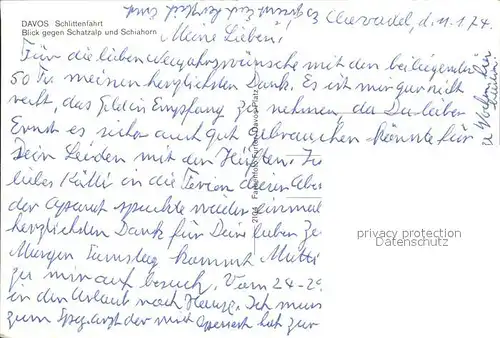 DAVOS Schlittenfahrt
Blick gegen Schatzalp und Schiahorn
Clavadel, d. 11.1.74.
Meine Lieben!
Für die lieben Neujahrswünsche mit den beiliegenden
50 Fr. meinen herzlichsten Dank. Es ist mir gar nicht
recht, das Geld in Empfang zu nehmen, da Du lieber
Ernst es sicher auch gut gebrauchen könnte für
Dein Leiden mit den Hüften.
liebes Kätti in die Ferien
der Apparat spuckte wieder einmal
herzlichsten Dank für Deine lieben
Morgen Samstag kommt Mutti
zu mir auf Besuch. Vom 24-29
in den Urlaub nach Hause. Ich muss
zum Spez.arzt der mich operiert hat zur
2104 Farbenfoto Furter, Davos-Platz
privacy protection
Datenschutz